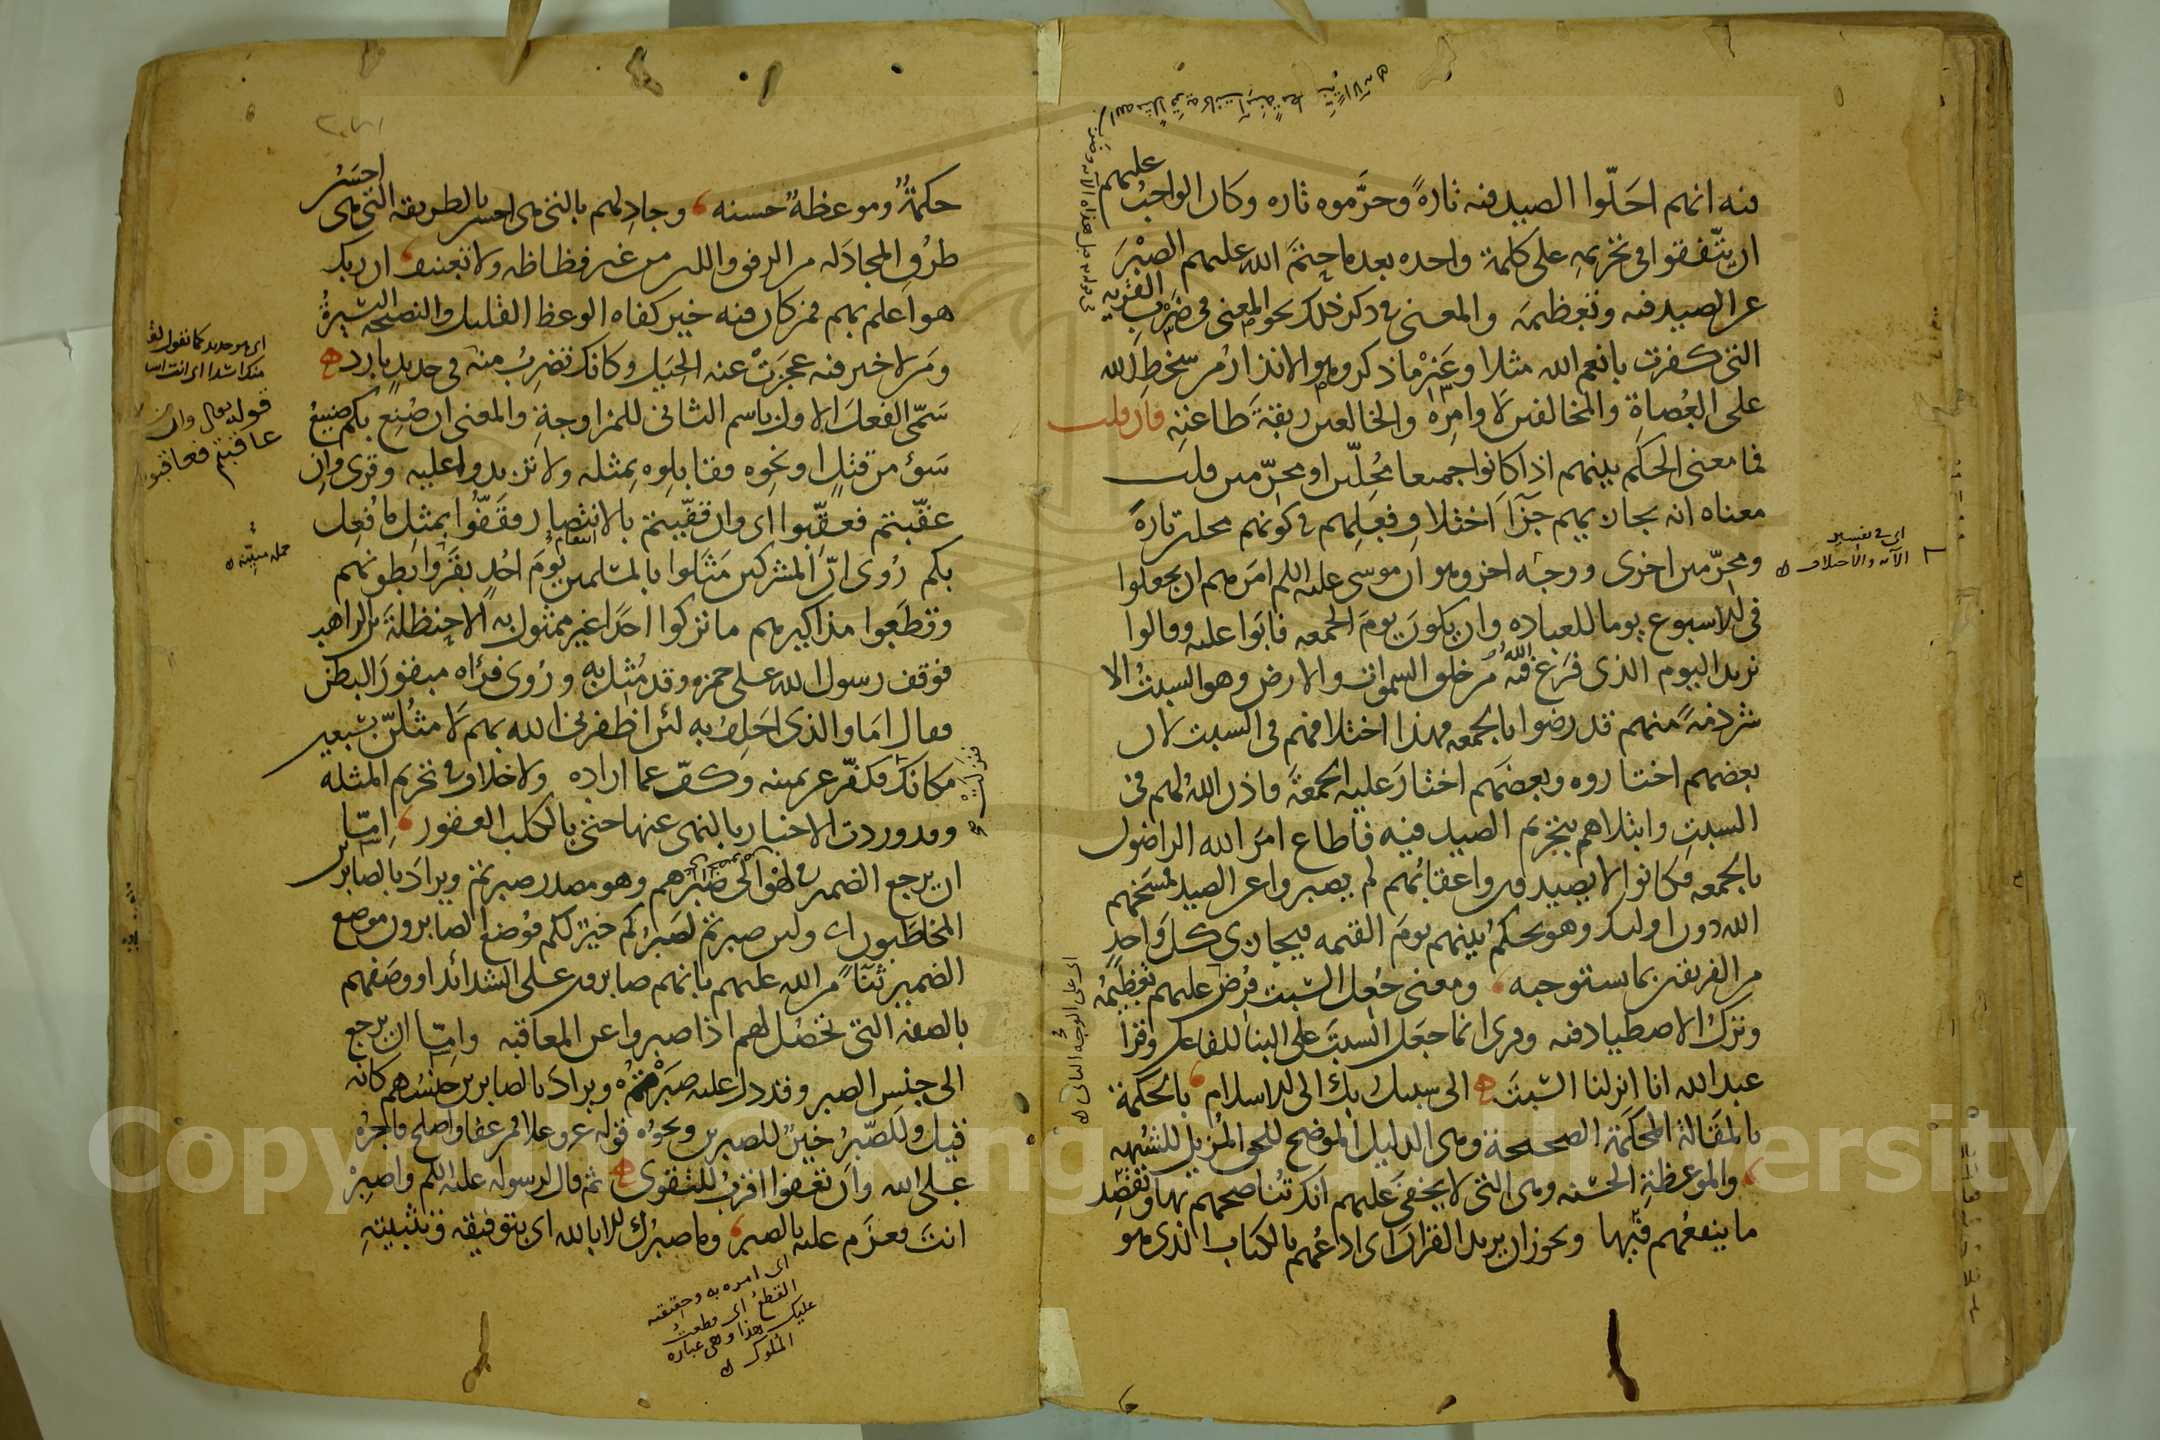 فيه انهم احلّوا الصيد فيه تارةً وحرَّموه تاره وكان الواجب عليهم
ان يتّفقوا في تحريمه على كلمة واحده بعد ما حتم الله عليهم الصبر
عن الصيد فيه وتعظيمه والمعنى في ذكر ذلك نحو المعنى في ضرب القريه
التي كفرت بانعم الله مثلا وغير ما ذكر وهو الانذار من سخط الله
على العُصاة والمخالفين لاوامره والخالعين ربقة طاعته فان قلت
فما معنى الحكم بينهم اذا كانوا جميعا مُحِلّين او محرّمين قلت
معناه انه يجازيهم جزآ اختلاف فعلهم في كونهم محلين تارةً
ومحرّمين اخرى ووجه اخر وهو ان موسى عليه السلم امرهم ان يجعلوا
في الاسبوع يوما للعباده وان يكون يوم الجمعه فابوا عليه وقالوا
نريد اليوم الذي فرغ الله فيه من خلق السموات والارض وهو السبت الا
شرذمةً منهم قد رضوا بالجمعه فهذا اختلافهم في السبت لان
بعضهم اختاروه وبعضهم اختار عليه الجمعة فاذن الله لهم في
السبت وابتلاهم بتحريم الصيد فيه فاطاع امر الله الراضون
بالجمعه فكانوا لا يصيدون واعقابهم لم يصبروا عن الصيد فمسخهم
الله دون اولئك وهو يحكم بينهم يوم القيمه فيجازى كل واحد
من الفريقين بما يستوجبه ومعنى جُعل السبت فُرِض عليهم تعظيمُه
وترك الاصطياد فيه وقرى انما جعل السبت على البنا للفاعل وقرا
عبد الله انا انزلنا السبت ه الى سبيل ربك الى الاسلام بالحكمة
بالمقالة المحكمة الصحيحة وهي الدليل الموضح للحق المزيل للشبهه
والموعظة الحسنه وهي التي لا يخفى عليهم انك تناصحهم بها وتقصد
ما ينفعهم فيها ويجوز ان يريد القران اى ادعُهم بالكتاب الذي هو
اى في تفسير
الآيه والاختلاف
اى على الوجه الثانى
حكمةٌ وموعظةٌ حسنه وجادلهم بالتي هي احسن بالطريقه التي هي احسن
طرق المجادله من الرفق واللين من غير فظاظه ولا تعنيف ان ربك
هو اعلم بهم فمن كان فيه خير كفاه الوعظ القليل والنصيحه اليسيرة
ومن لا خير فيه عجزت عنه الحيل وكانك تضرب منه في حديدٍ بارد ه
سَمّى الفعل الاول باسم الثاني للمزاوجة والمعنى ان صُنع بكم صنيعُ
سوء من قتلٍ او نحوه فقابلوه بمثله ولا تزيدوا عليه وقرى وان
عقّبتم فعقّبوا اى وان قفّيتم بالانتصار فقفّوا بمثل ما فُعل
بكم رُوى انّ المشركين مثّلوا بالمسلمين يوم احُدٍ بقروا بطونهم
وقطعوا مذاكيرهم ما تركوا احدا غير ممثول به الا حنظلة بن الراهب
فوقف رسول الله على حمزه وقد مُثل به ورُوى فرآه مبقور البطن
فقال اما والذى احلف به لئن اظفرني الله بهم لامثلنّ بسبعين
مكانك فكفّر عن يمينه وكفّ عما اراده ولا خلاف في تحريم المثله
وقد وردت الاخبار بالنهى عنها حتى بالكلب العقور امّا
ان يرجع الضمير في لهو الى صبرهم وهو مصدر صبرتم ويراد بالصابرين
المخاطبون اى ولئن صبرتم لصبرُكم خيرٌ لكم فوُضع الصابرون موضع
الضمير ثنآً من الله عليهم بانهم صابرون على الشدائد او وصفهم
بالصفه التي تحصُل لهم اذا صبروا عن المعاقبه وامّا ان يرجع
الى جنس الصبر وقد دل عليه صبرتم ويراد بالصابرين جنسُهم كانه
قيل وللصّبرُ خيرٌ للصبرين ونحوُه قوله عز وعلا فمن عفا واصلح فاجره
على الله وان تعفوا اقرب للتقوى ه ثم قال لرسوله عليه السلم واصبر
انت فعزم عليه بالصبر وما صبرك الا بالله اى بتوفيقه وتثبيته
قوله تعالى وان
عاقبتم فعاقبوا
اى امره به وحقيقته
القطع اى قطعت
عليك هذا وهى عباره
الملوك
Copyright © King Saud University